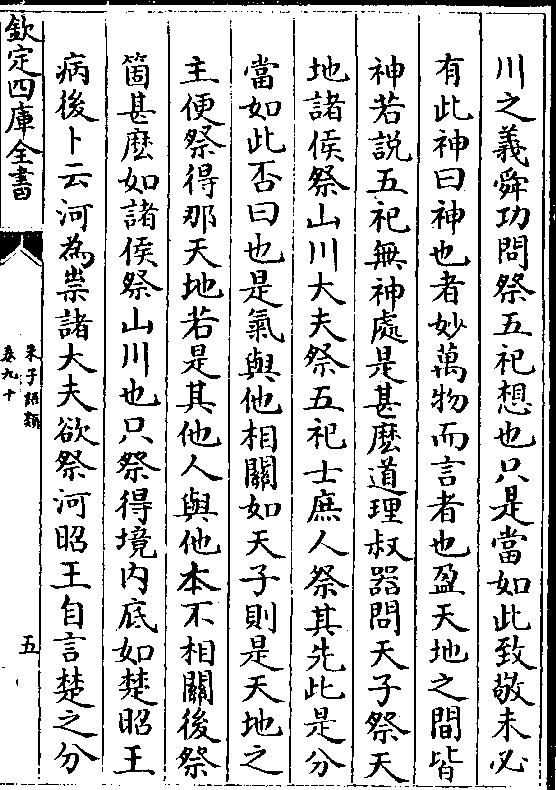 川之義舜功問祭五祀想也只是當如此致敬未必
有此神曰神也者妙萬物而言者也盈天地之間皆
神若説五祀無神處是甚麽道理叔器問天子祭天
地諸侯祭山川大夫祭五祀士庶人祭其先此是分
當如此否曰也是氣與他相關如天子則是天地之
主便祭得那天地若是其他人與他本不相關後祭
箇甚麽如諸侯祭山川也只祭得境内底如楚昭王
病後卜云河為祟諸大夫欲祭河昭王自言楚之分
欽定四庫全書
朱子語類
卷九十
五